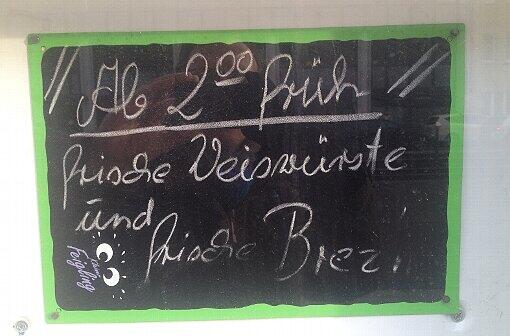 // Ab 2⁰⁰ früh //
frische Veiswürste
und
frische Brez
kleiner Feigling